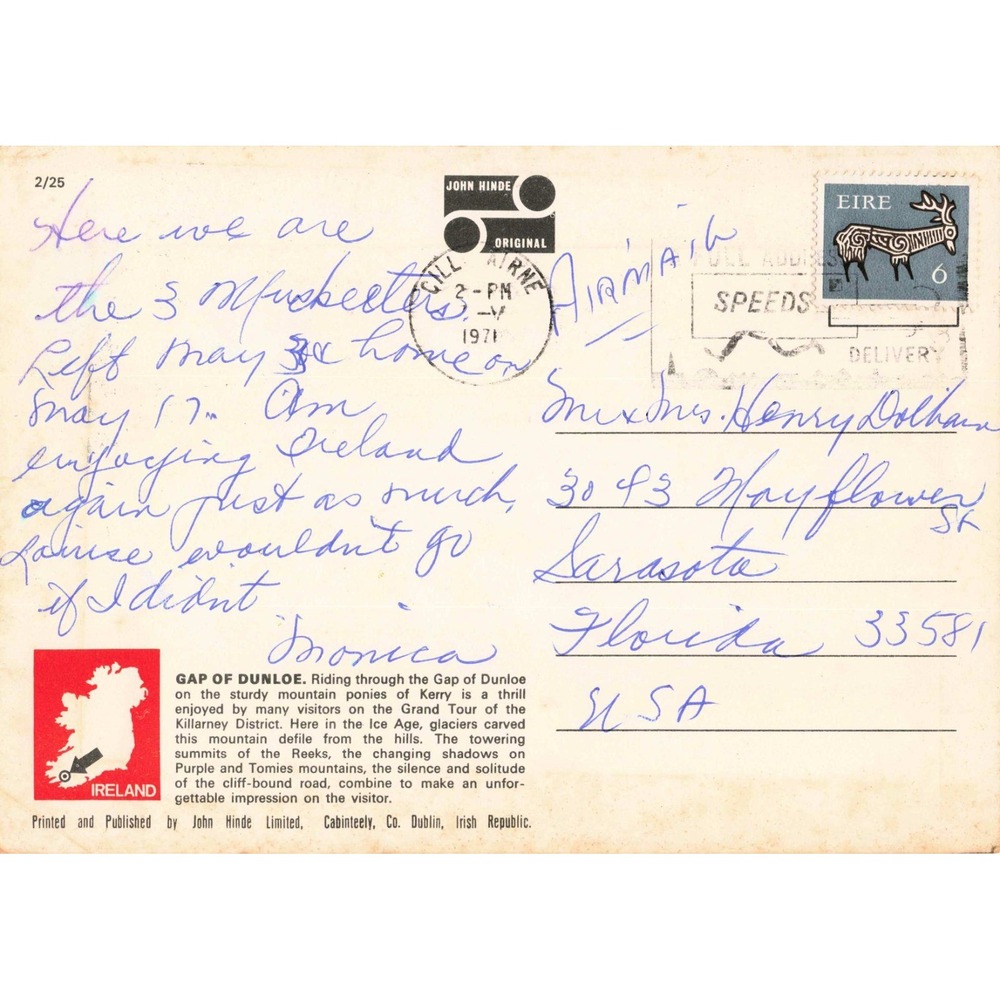 2/25
JOHN HINDE
ORIGINAL
Here we are
the 3 Musketters.
Left May 3 & home on
May 17. Am
enjoying Ireland
again just as much,
Louise wouldn't go
if I didn't
Monica
CILL AIRNE
2 - PM
- V
1971
Airmail
FULL ADDRESS
SPEEDS
DELIVERY
EIRE
6
Mr & Mrs. Henry Dolham
3043 Mayflower
St
Sarasota
Florida 33581
USA
IRELAND
GAP OF DUNLOE. Riding through the Gap of Dunloe
on the sturdy mountain ponies of Kerry is a thrill
enjoyed by many visitors on the Grand Tour of the
Killarney District. Here in the Ice Age, glaciers carved
this mountain defile from the hills. The towering
summits of the Reeks, the changing shadows on
Purple and Tomies mountains, the silence and solitude
of the cliff-bound road, combine to make an unfor-
gettable impression on the visitor.
Printed and Published by John Hinde Limited, Cabinteely, Co. Dublin, Irish Republic.